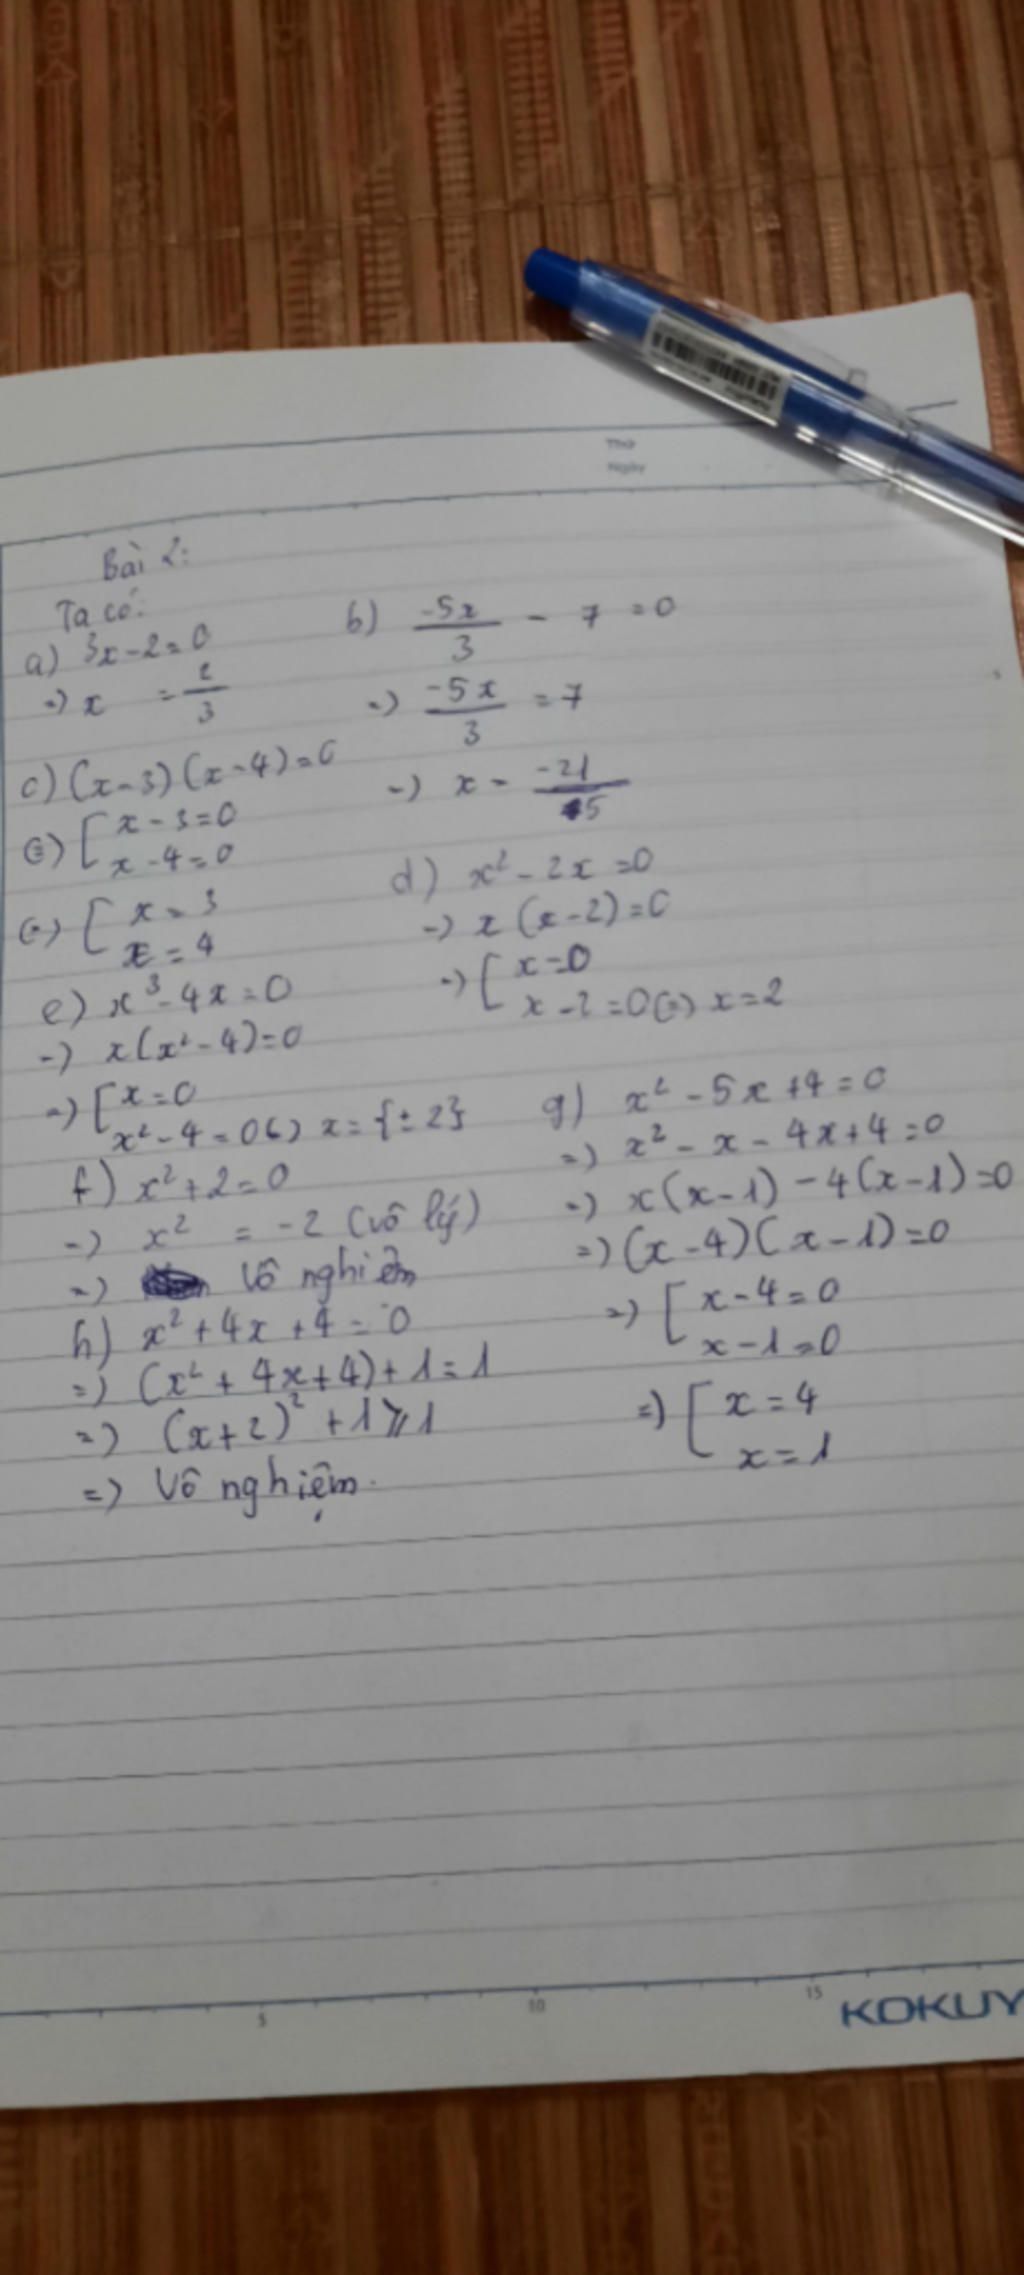 Thứ
Ngày
Bài 2:
Ta có:
a) 3x-2=0
=) x = 2/3
b) -5x/3 - 7 =0
=) -5x/3 = 7
=) x = -21/5
c) (x-3)(x-4)=0
(=) [ x-3=0
x-4=0
(=) [ x = 3
x = 4
d) x² - 2x =0
=) x(x-2)=0
=) [ x=0
x-2=0(=) x=2
e) x³-4x=0
=) x(x²-4)=0
=) [ x=0
x²-4=0(=) x={±2}
f) x²+2=0
=) x² = -2 (vô lý)
=) Vô nghiệm
g) x² -5x+4=0
=) x² - x - 4x+4=0
=) x(x-1) -4(x-1)=0
=) (x-4)(x-1)=0
=) [ x-4=0
x-1=0
=) [ x=4
x=1
h) x²+4x+4=0
=) (x²+4x+4)+1=1
=) (x+2)²+1⩾1
=) Vô nghiệm.
5 10 15
KOKUY